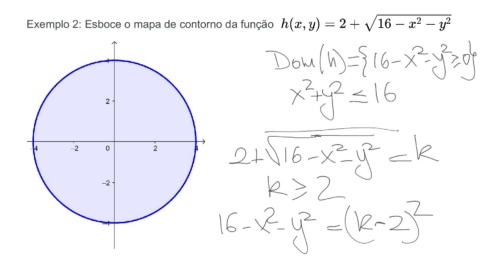 Exemplo 2: Esboce o mapa de contorno da função h(x, y) = 2 + √(16 − x² − y²)
Dom(h) = {16 − x² − y² ≥ 0}
x² + y² ≤ 16
2 + √(16 − x² − y²) = k
k ≥ 2
16 − x² − y² = (k − 2)²
4
2
−4 −2 0 2 4
−2
−4